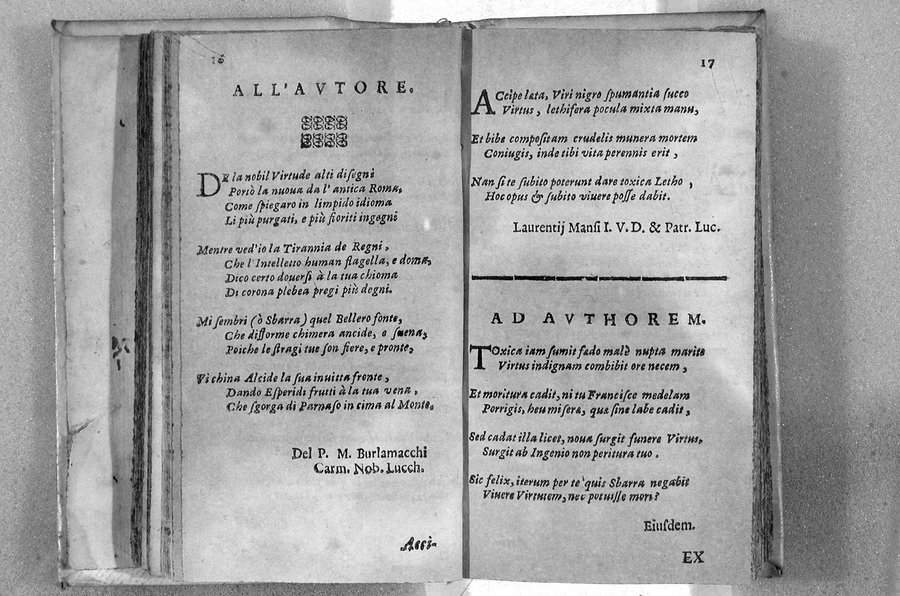 16
ALL'AVTORE.
DE la nobil Virtude alti disegni
Portò la nuoua da l'antica Roma,
Come spiegaro in limpido idioma
Li più purgati, e più fioriti ingegni
Mentre ved'io la Tirannia de Regni,
Che l'Intelletto human flagella, e doma,
Dico certo douersi à la tua chioma
Di corona plebea pregi più degni.
Mi sembri (ò Sbarra) quel Bellero fonte,
Che difforme chimera ancide, e suena,
Poiche le stragi tue son fiere, e pronte,
Vi china Alcide la sua inuitta fronte,
Dando Esperidi frutti à la tua vena,
Che sgorga di Parnaso in cima al Monte.
Del P. M. Burlamacchi
Carm. Nob. Lucch.
Acci-
17
ACcipe læta, Viri nigro spumantia succo
Virtus, lethifera pocula mixta manu,
Et bibe compositam crudelis munera mortem
Coniugis, inde tibi vita perennis erit,
Nan si te subito poterunt dare toxica Letho,
Hoc opus & subito viuere posse dabit.
Laurentij Mansi I. V. D. & Patr. Luc.
AD AVTHOREM.
TOxica iam sumit fædo malè nupta marito
Virtus indignam combibit ore necem,
Et moritura cadit, ni tu Francisce medelam
Porrigis, heu misera, quæ sine labe cadit,
Sed cadat illa licet, noua surgit funere Virtus,
Surgit ab Ingenio non peritura tuo.
Sic felix, iterum per te quis Sbarra negabit
Viuere Virtutem, nec potuisse mori?
Eiusdem.
EX